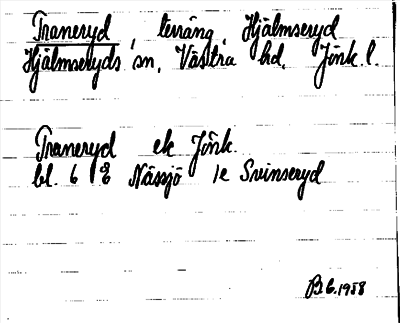 Traneryd, terräng, Hjälmseryd
Hjälmseryds sn, Västra hd, Jönk. l.
Traneryd ek Jönk.
bl. 6 Nässjö 1e Svinseryd
1958